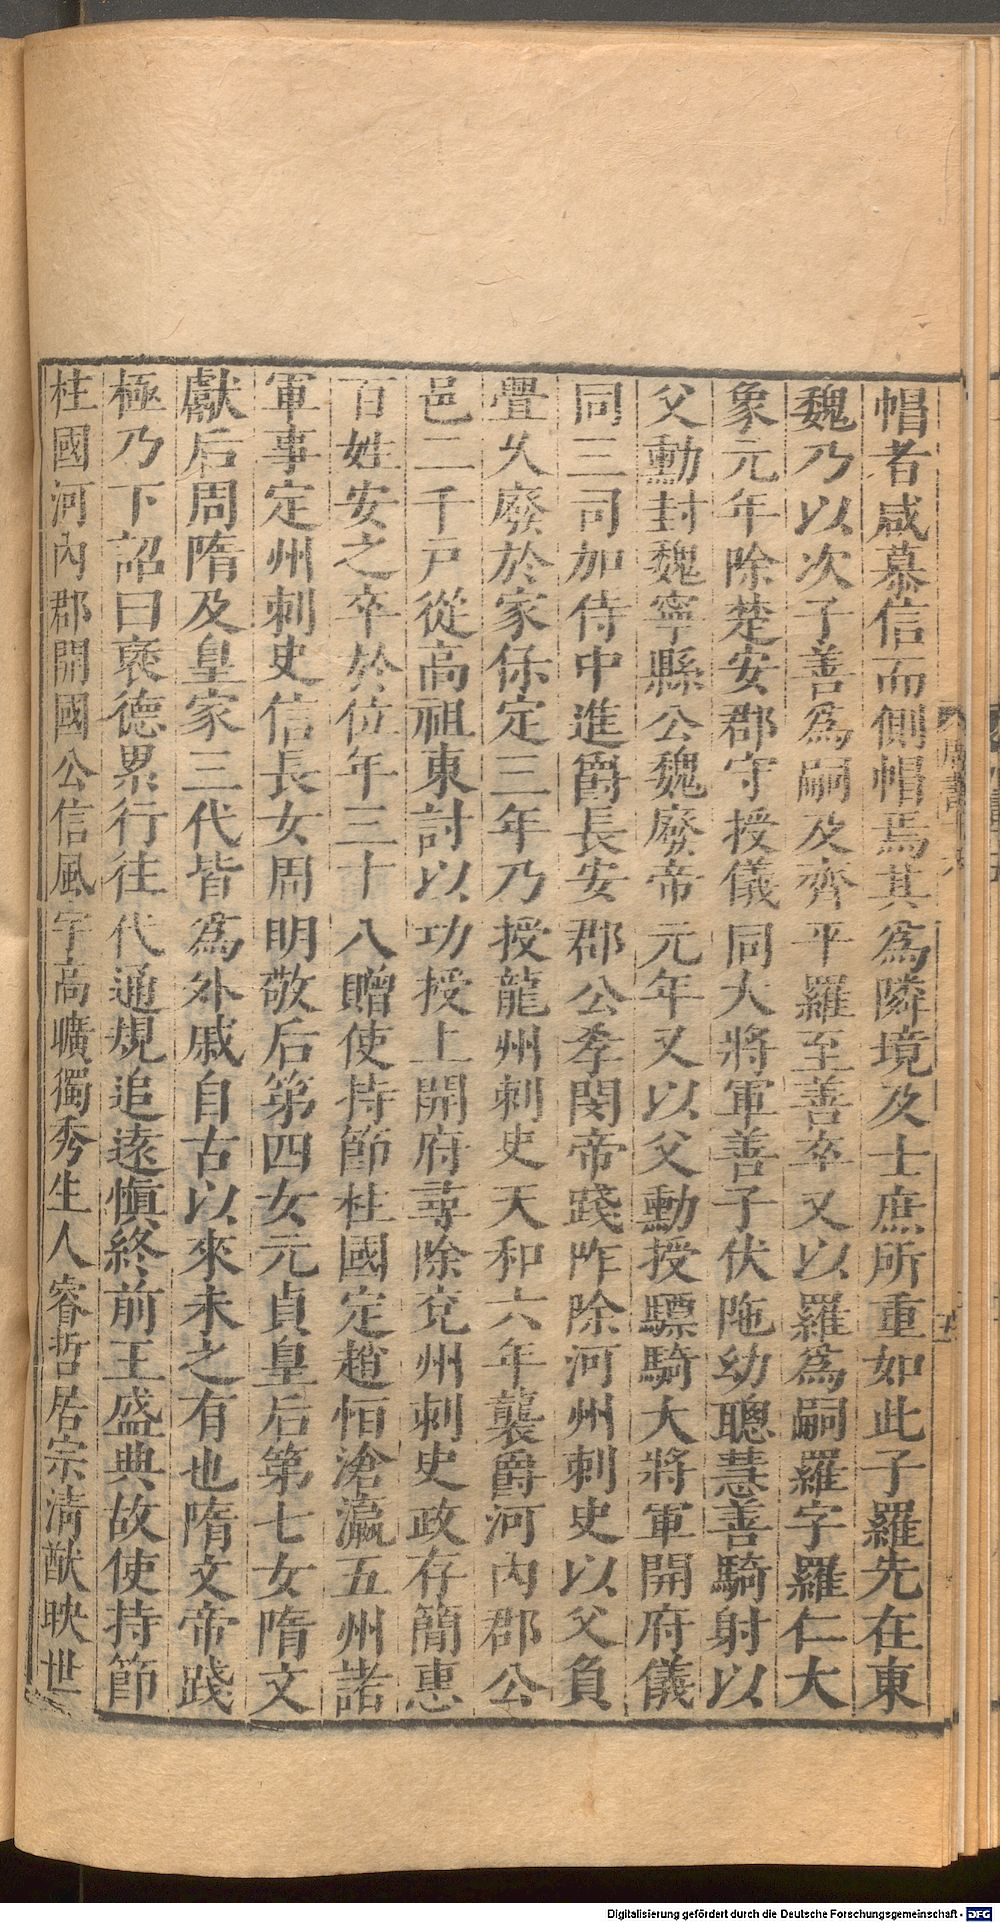 帽者咸慕信而側帽焉其為隣境及士庶所重如此子羅先在東
魏乃以次子善為嗣及齊平羅至善卒又以羅為嗣羅字羅仁大
象元年除楚安郡守授儀同大將軍善子伏陁幼聰慧善騎射以
父勳封魏寧縣公魏廢帝元年又以父勳授驃騎大將軍開府儀
同三司加侍中進爵長安郡公孝閔帝踐阼除河州刺史以父負
釁久廢於家保定三年乃授龍州刺史天和六年襲爵河內郡公
邑二千戶從高祖東討以功授上開府尋除兗州刺史政存簡惠
百姓安之卒於位年三十八贈使持節柱國定趙恒滄瀛五州諸
軍事定州刺史信長女周明敬后第四女元貞皇后第七女隋文
獻后周隋及皇家三代皆為外戚自古以來未之有也隋文帝踐
極乃下詔曰褒德累行往代通規追遠愼終前王盛典故使持節
柱國河內郡開國公信風宇高曠獨秀生人睿哲居宗清猷映世
Digitalisierung gefördert durch die Deutsche Forschungsgemeinschaft - DFG